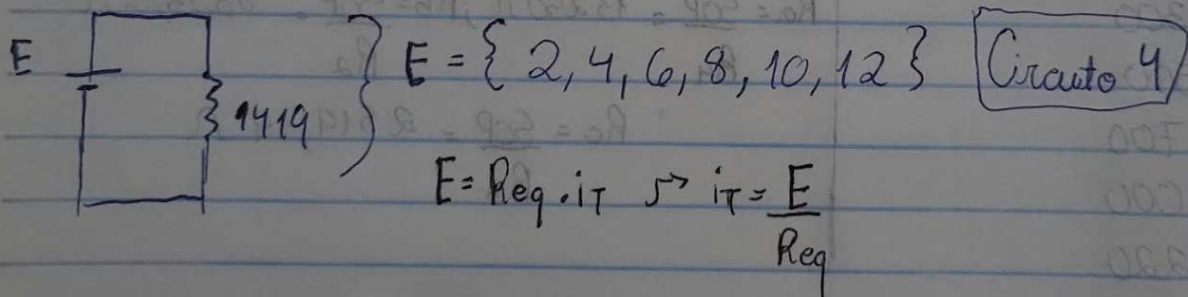 E
1419
E = { 2, 4, 6, 8, 10, 12 }
Circuito 4
E = Req . iT ↝ iT = E / Req